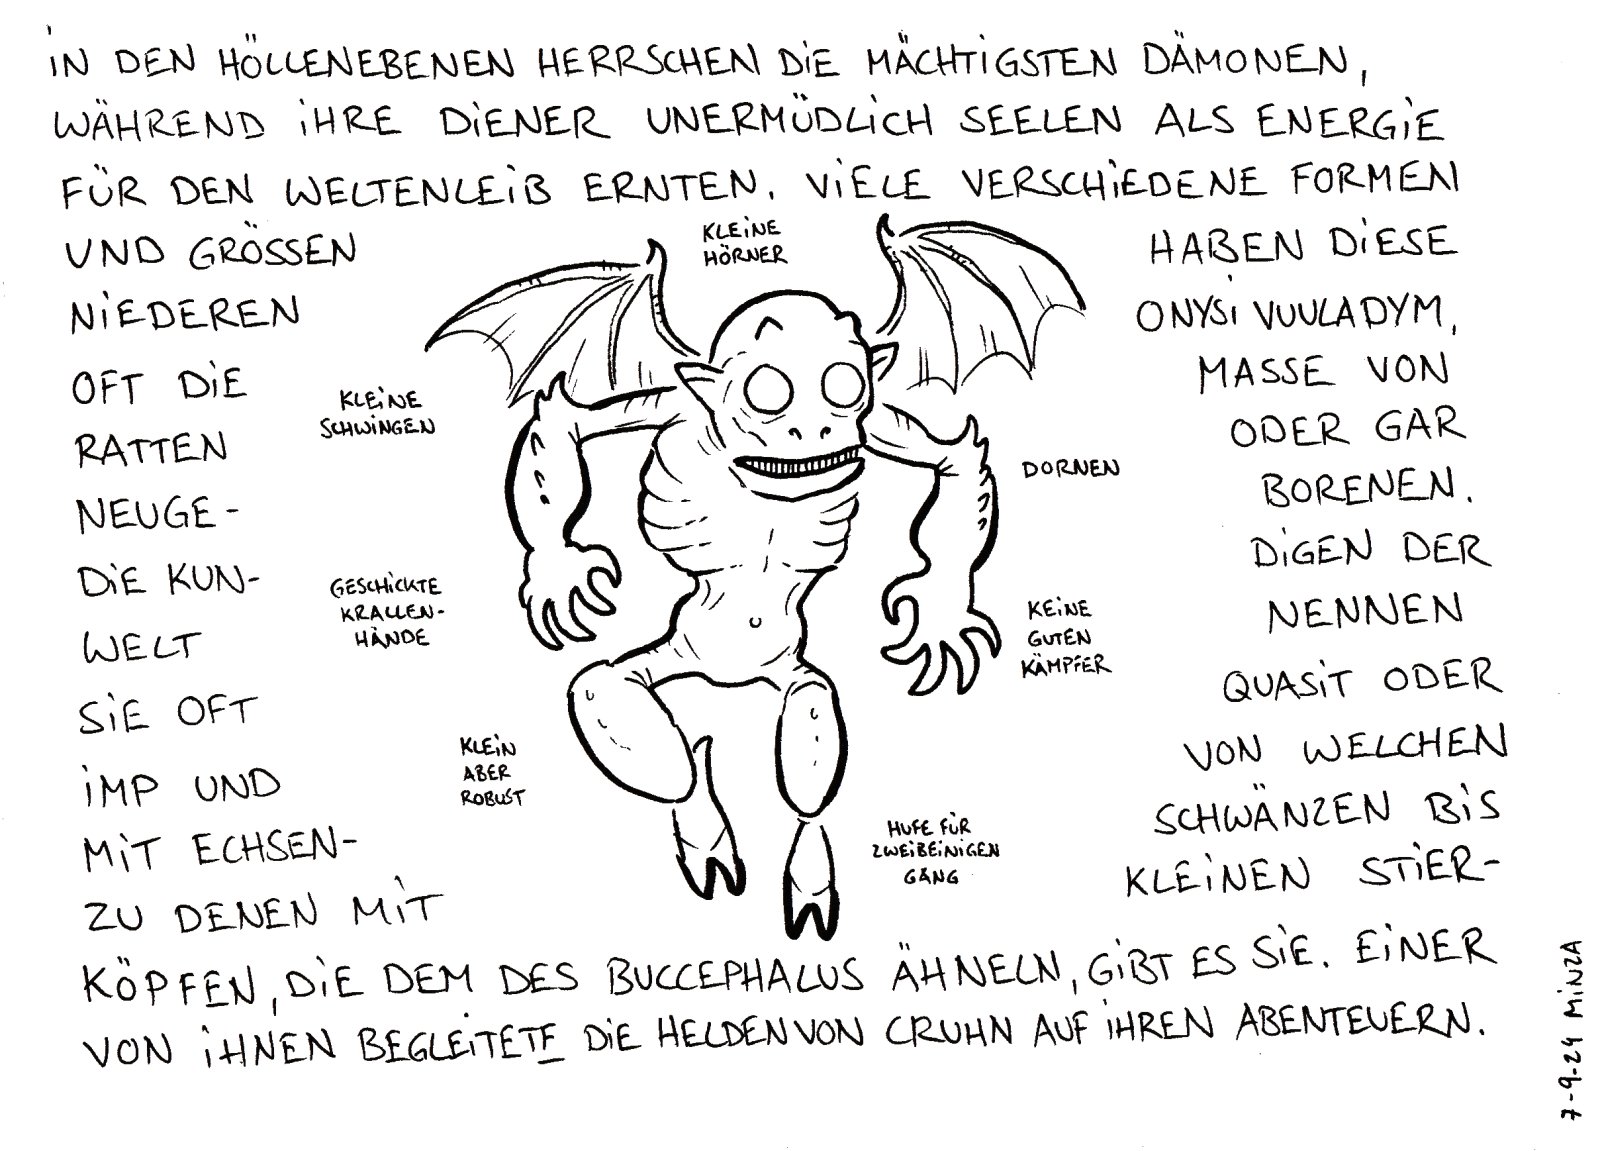 iN DEN HÖLLENEBENEN HERRSCHEN DiE MÄCHTiGSTEN DÄMONEN,
WÄHREND iHRE DiENER UNERMÜDLiCH SEELEN ALS ENERGiE
FÜR DEN WELTENLEiB ERNTEN. ViELE VERSCHiEDENE FORMEN
UND GRÖSSEN HABEN DiESE
NiEDEREN ONYSi VUULADYM,
OFT DiE MASSE VON
RATTEN ODER GAR
NEUGE- BORENEN.
DiE KUN- DiGEN DER
WELT NENNEN
SiE OFT QUASiT ODER
iMP UND VON WELCHEN
MiT ECHSEN- SCHWÄNZEN BiS
ZU DENEN MiT KLEiNEN STiER-
KÖPFEN, DiE DEM DES BUCCEPHALUS ÄHNELN, GiBT ES SiE. EiNER
VON iHNEN BEGLEiTETE DiE HELDEN VON CRUHN AUF iHREN ABENTEUERN.
KLEiNE
HÖRNER
KLEiNE
SCHWiNGEN
DORNEN
GESCHiCKTE
KRALLEN-
HÄNDE
KEiNE
GUTEN
KÄMPFER
KLEiN
ABER
ROBUST
HUFE FÜR
ZWEiBEiNiGEN
GANG
7-9-24 MiNZA